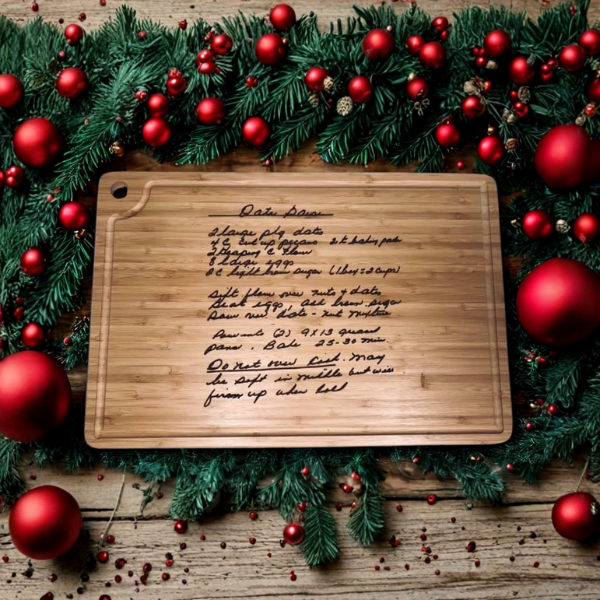 Date Bars
2 large pkg dates
4 C. cut up pecans 2 t baking pwd
2 Heaping C flour
8 large eggs
2 C light brown sugar (1 box = 2 cups)
Sift flour over nuts & dates
Beat eggs, add brown sugar
Pour over date - nut mixture
(2) 9x13 greased
pans. Bake 25-30 min
Do not over cook. May
be soft in middle but will
firm up when cool